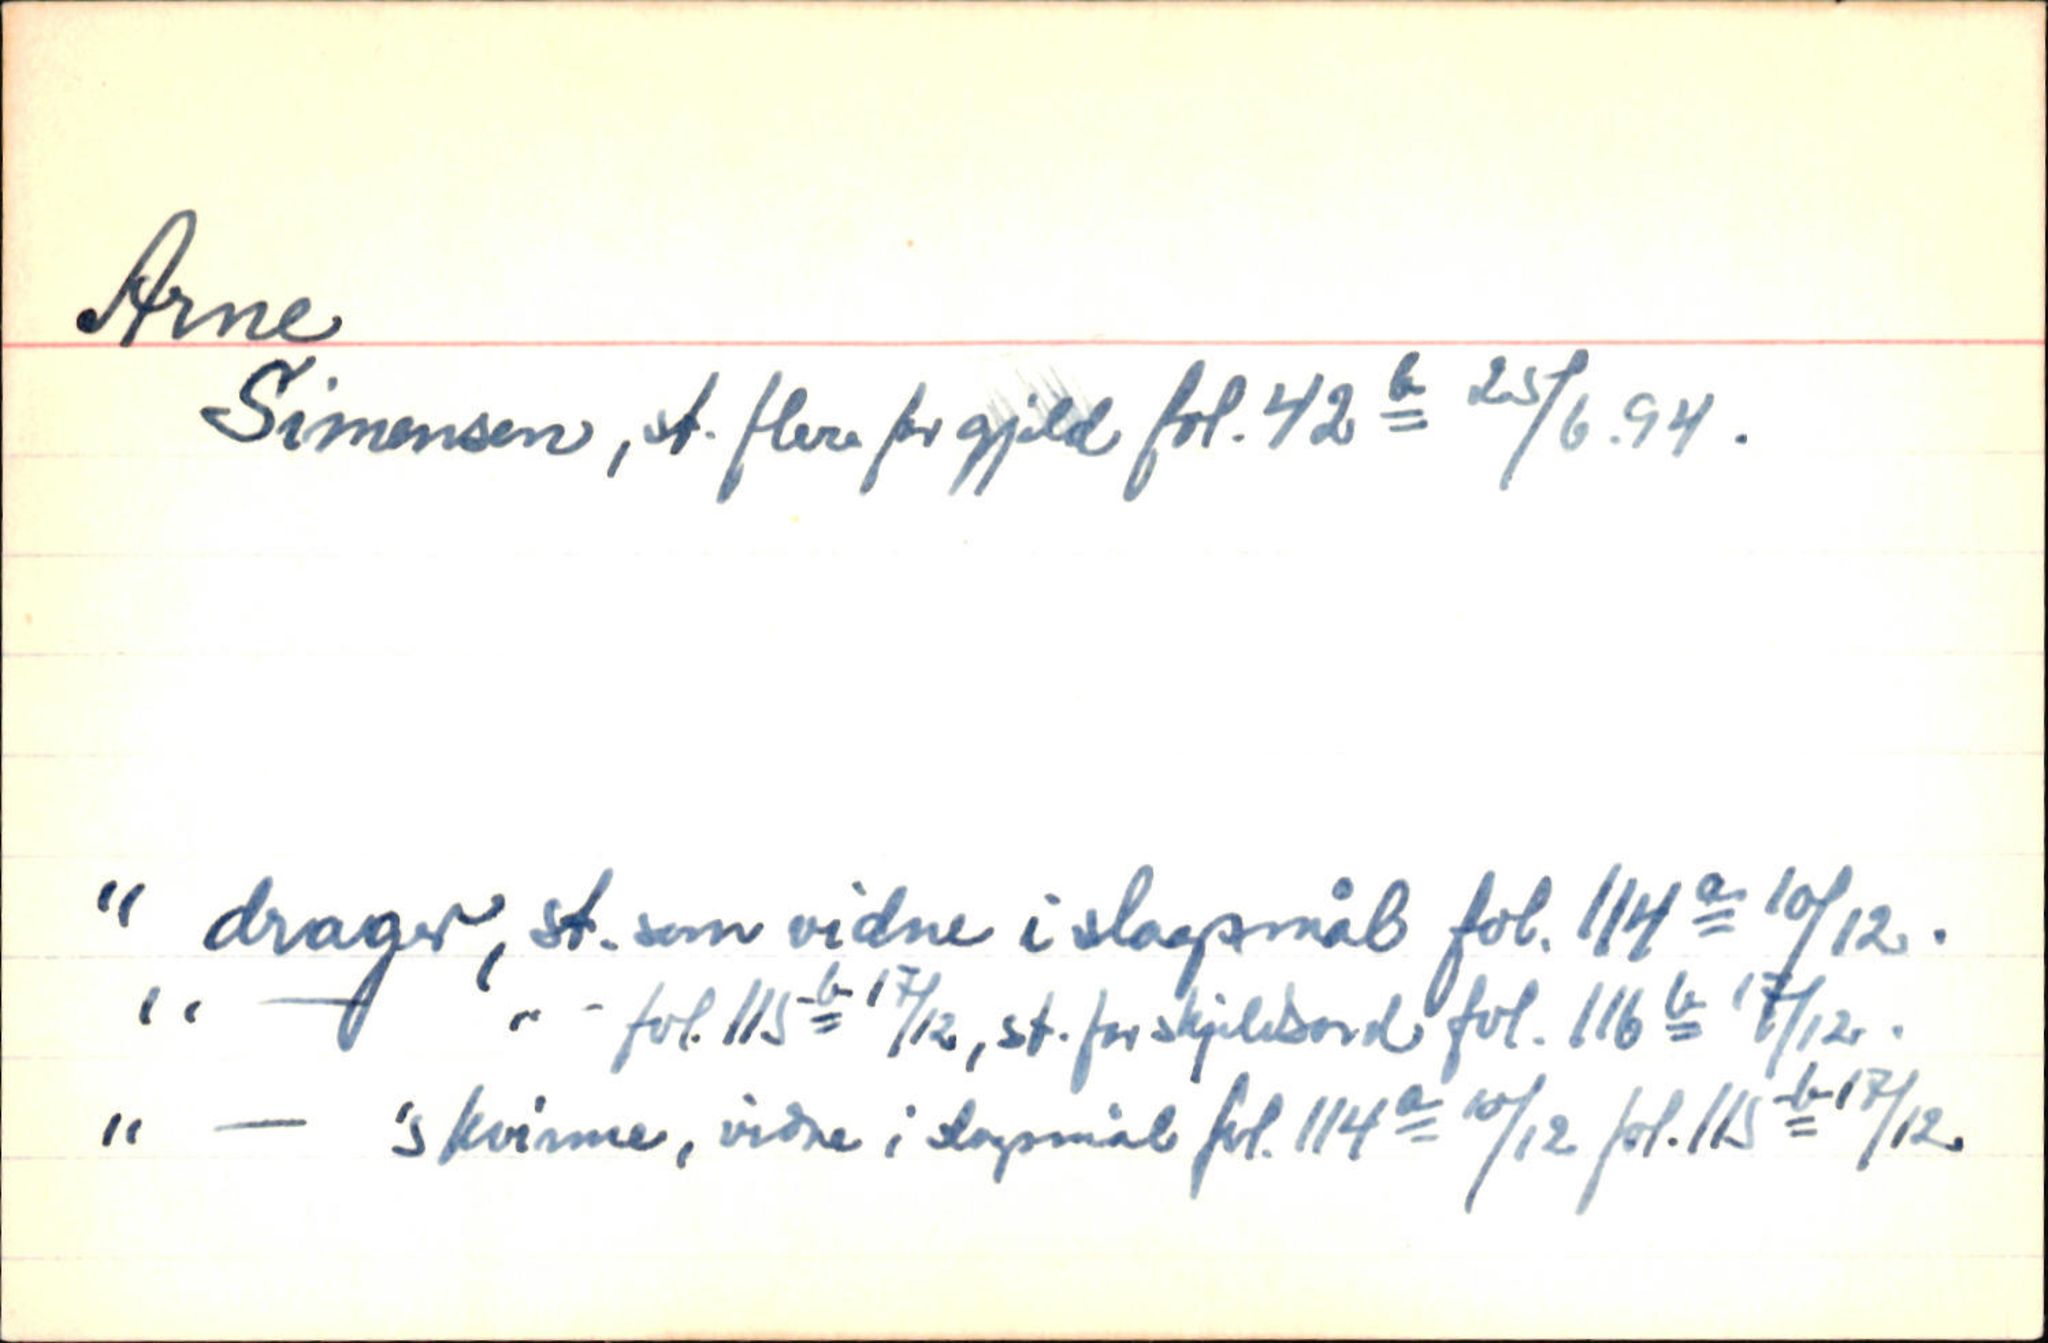 Arne
Simensen, st. flere for gjeld fol. 42 b 25/6.94.
" drager, st. som vidne i slagsmål fol. 114 a 10/12.
" — " - fol. 115 b 17/12, st. for skjeldsord fol. 116 b 17/12.
" — 's kvinne, vidne i slagsmål fol. 114 a 10/12 fol. 115 b 17/12.